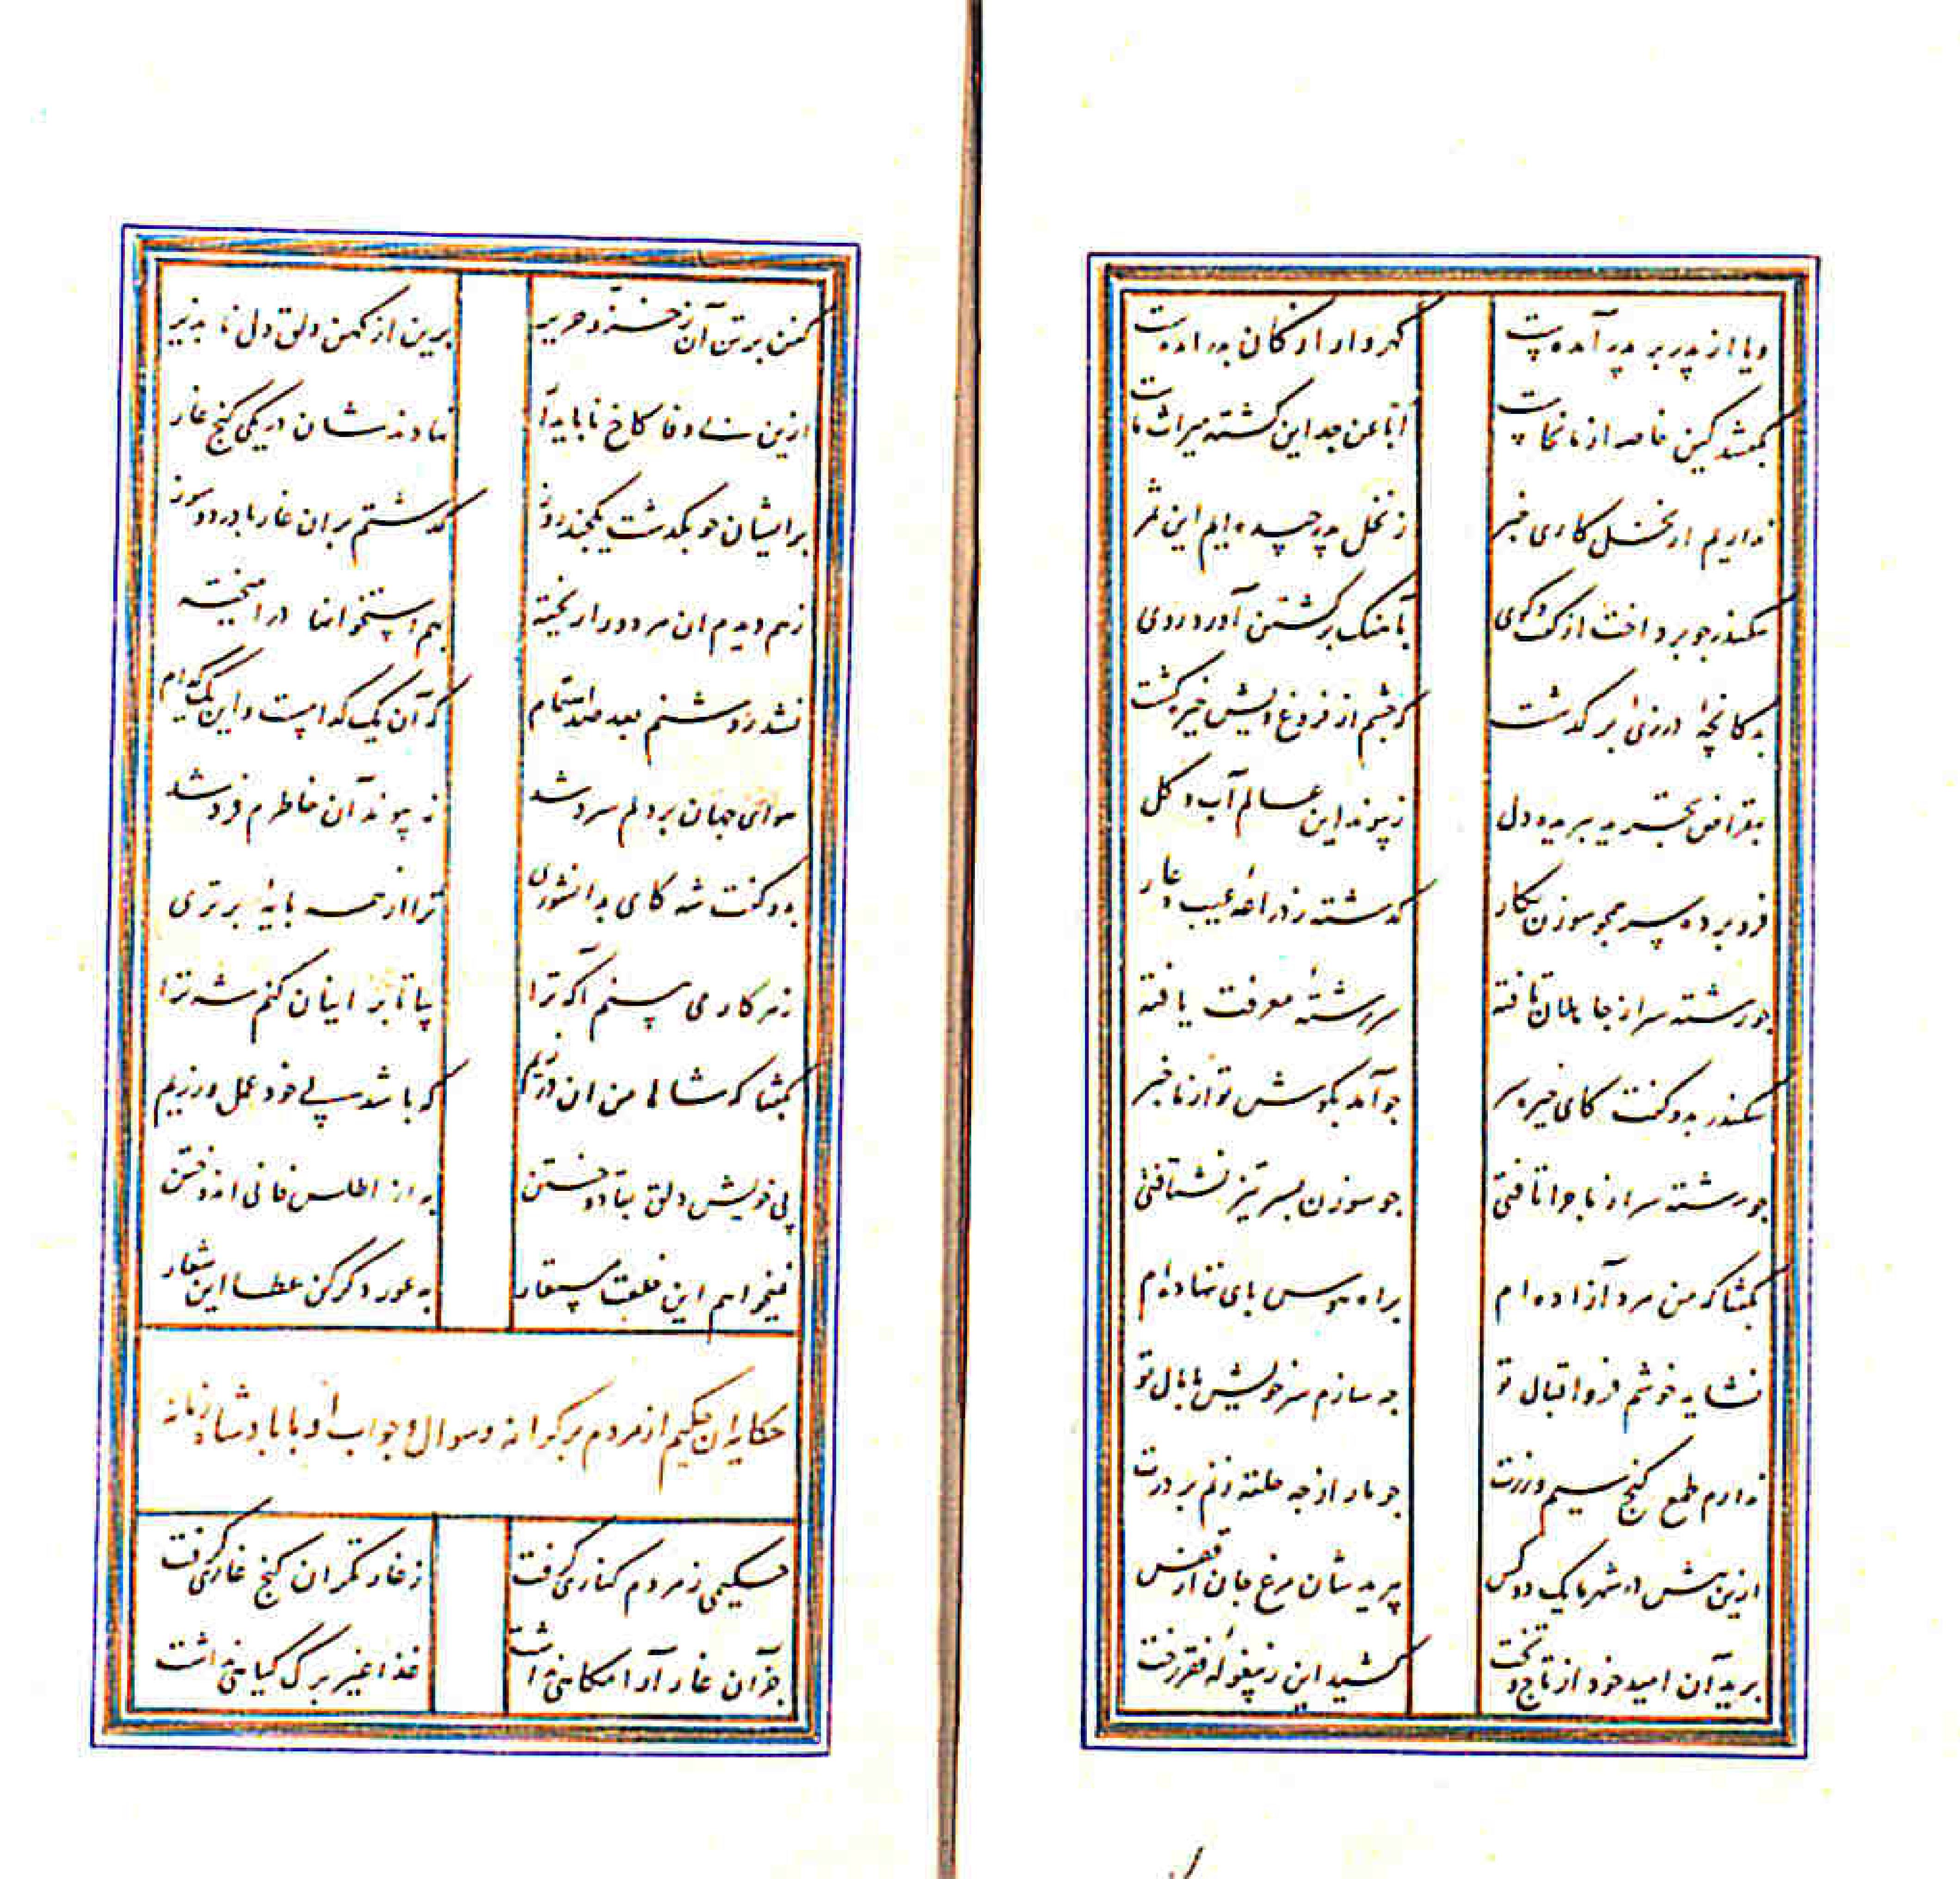 ویا از پدر بر پدر آمده‌ست گهروار از کان بدر آمده‌ست
بگفتند کین خاصه از ما نخاست اباعن جد این گشته میراث ماست
نداریم از نخل کاری خبر ز نخل پدر چیده‌ایم این ثمر
سکندر چو پرداخت از گفت و گوی بآهنگ برگشتن آورد روی
به دکانچهٔ درزیی برگذشت که چشم از فروغ دلش خیره گشت
بمقراض تجرید ببریده دل ز پیوند این عالم آب و گل
فرو برده سر همچو سوزن بکار گذشته ز دراعهٔ عیب و عار
چو رشته سر از جاهلان تافته سر رشتهٔ معرفت یافته
سکندر بدو گفت کای خیره سر چو آمد بگوش تو از ما خبر
چو رشته سر از ما چرا تافتی چو سوزن بسر تیز نشتافتی
بگفتا که من مرد آزاده‌ام براه هوس پای ننهاده‌ام
نشاید خوشم فر و اقبال تو چه سازم سر خویش پامال تو
ندارم طمع گنج سیم و زرت چو مار از چه حلقه زنم بر درت
ازین پیش در شهر ما یک دو کس پریدشان مرغ جان از قفس
برید آن امید خود از تاج و تخت کشید این ز پیغولهٔ فقر رخت
کفن بر تن آن ز خز و حریر برین از کهن دلق دل ناپذیر
ازین بی وفا کاخ ناپایدار نهادندشان در یکی کنج غار
بر ایشان چو بگذشت یکچند روز گذشتم بران غار با درد و سوز
ز هم دیدم آن هر دو را ریخته بهم استخوانها در آمیخته
نشد روشنم بعد صد اهتمام که آن یک کدامست و این یک کدام
هوای جهان بر دلم سرد شد ز پیوند آن خاطرم فرد شد
بدو گفت شه کای بدانشوری ترا از همه پایهٔ برتری
ز هر کار می‌بینم آگه ترا بیا تا بر اینان کنم شه ترا
بگفتا که شاها من آن درزیم که باشد پی خود عمل ورزیم
پی خویش دلق بقا دوختن به از اطلس فانی اندوختن
نمیخواهم این خلعت مستعار به عور دگر کن عطا این شعار
حکایت آن حکیم از مردم بر کرانه و سوال و جواب او با پادشاه زمانه
حکیمی ز مردم کناری گرفت ز غارتگران کنج غاری گرفت
جز آن غار آرامگاهی نداشت غذا غیر برگ گیاهی نداشت